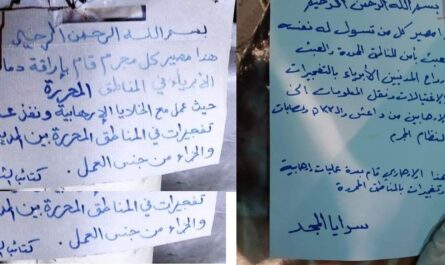 بسم الله الرحمن الرحيم
هذا مصير كل مجرم قام بإراقة دماء
الأبرياء في المناطق المحررة
حيث عمل مع الخلايا الإرهابية ونفذ
تفجيرات في المناطق المحررة بين
والجزاء من جنس العمل . كتائب
تفجيرات في المناطق المحررة بين
والجزاء من جنس العمل . كتائب
بسم الله الرحمن الرحيم
مصير كل من تسول له نفسه
بأمن المناطق المحررة والعبث
المدنيين الأبرياء بالتفجيرات
الاغتيالات ونقل المعلومات إلى
الإرهابيين من داعش والـ PKK وعصابات
النظام المجرم
هذا الإرهابي قام بعدة عمليات إرهابية
تفجيرات بالمناطق المحررة
سرايا المجد